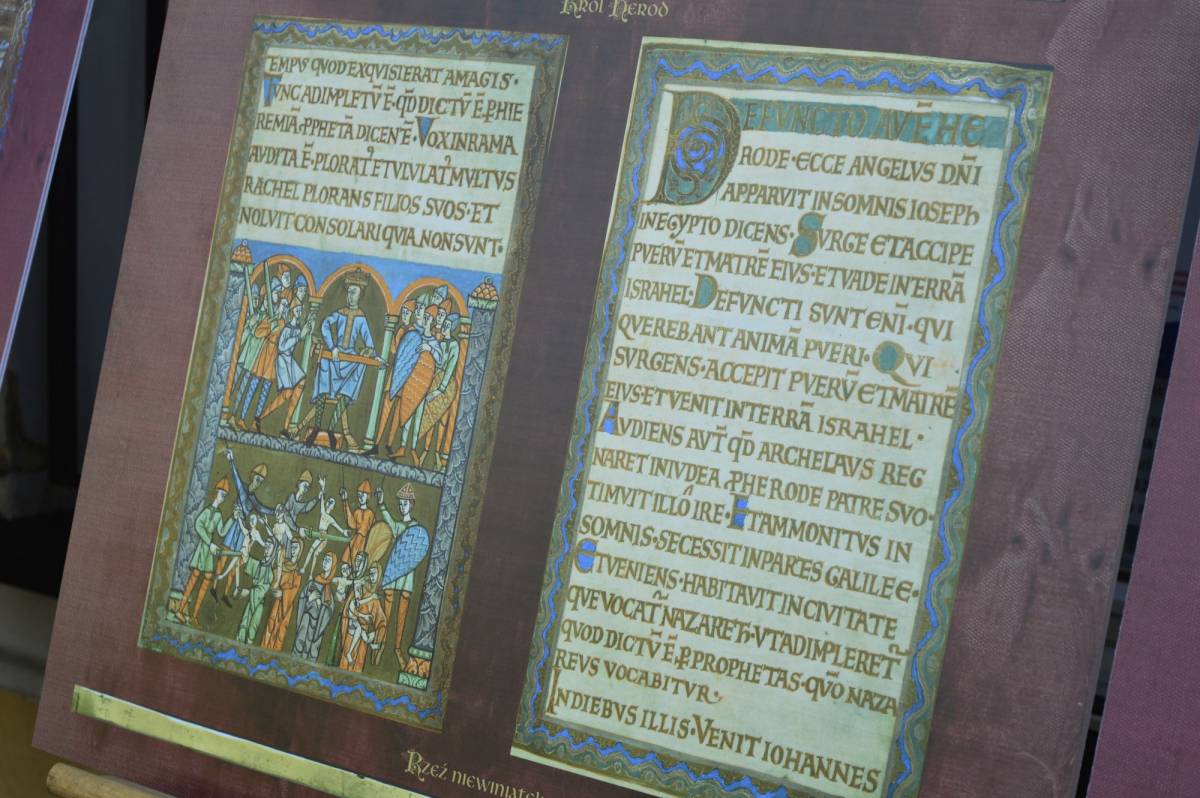 Król Herod
EMPVS QVOD EXQVISIERAT AMAGIS·
TVNC ADIMPLETV̄ Ē·QD̄ DICTV̄ Ē P̱ HIE
REMIĀ·P̱PHETĀ DICENTĒ·VOX IN RAMA
AVDITA Ē·PLORATꝰ ET VLVLATꝰ MVLTVS
RACHEL PLORANS FILIOS SVOS·ET
NOLVIT CONSOLARI QVIA·NON SVNT·
DEFVNCTO AVT̄ HE
RODE·ECCE ANGELVS DN̄I
APPARVIT IN SOMNIS IOSEPH
IN EGYPTO DICENS·SVRGE ET ACCIPE
PVERV̄ ET MATRĒ EIVS·ET VADE IN TERRĀ
ISRAHEL·DEFVNCTI SVNT ENĪ·QVI
QVEREBANT ANIMĀ PVERI·QVI
SVRGENS·ACCEPIT PVERV̄ ET MATRĒ
EIVS·ET VENIT IN TERRĀ ISRAHEL·
AVDIENS AVT̄ QD̄ ARCHELAVS REG
NARET IN IVDEA P̱ HERODE PATRE SVO·
TIMVIT ILLO IRE·ET AMMONITVS IN
SOMNIS·SECESSIT IN PARTES GALILEE·
ET VENIENS·HABITAVIT IN CIVITATE
QVE VOCAT̄ NAZARETH·VT ADIMPLERET̄
QVOD DICTV̄ Ē P̱ PROPHETAS·QVŌ NAZA
REVS VOCABITVR·
IN DIEBVS ILLIS·VENIT IOHANNES
Rzeź niewiniątek